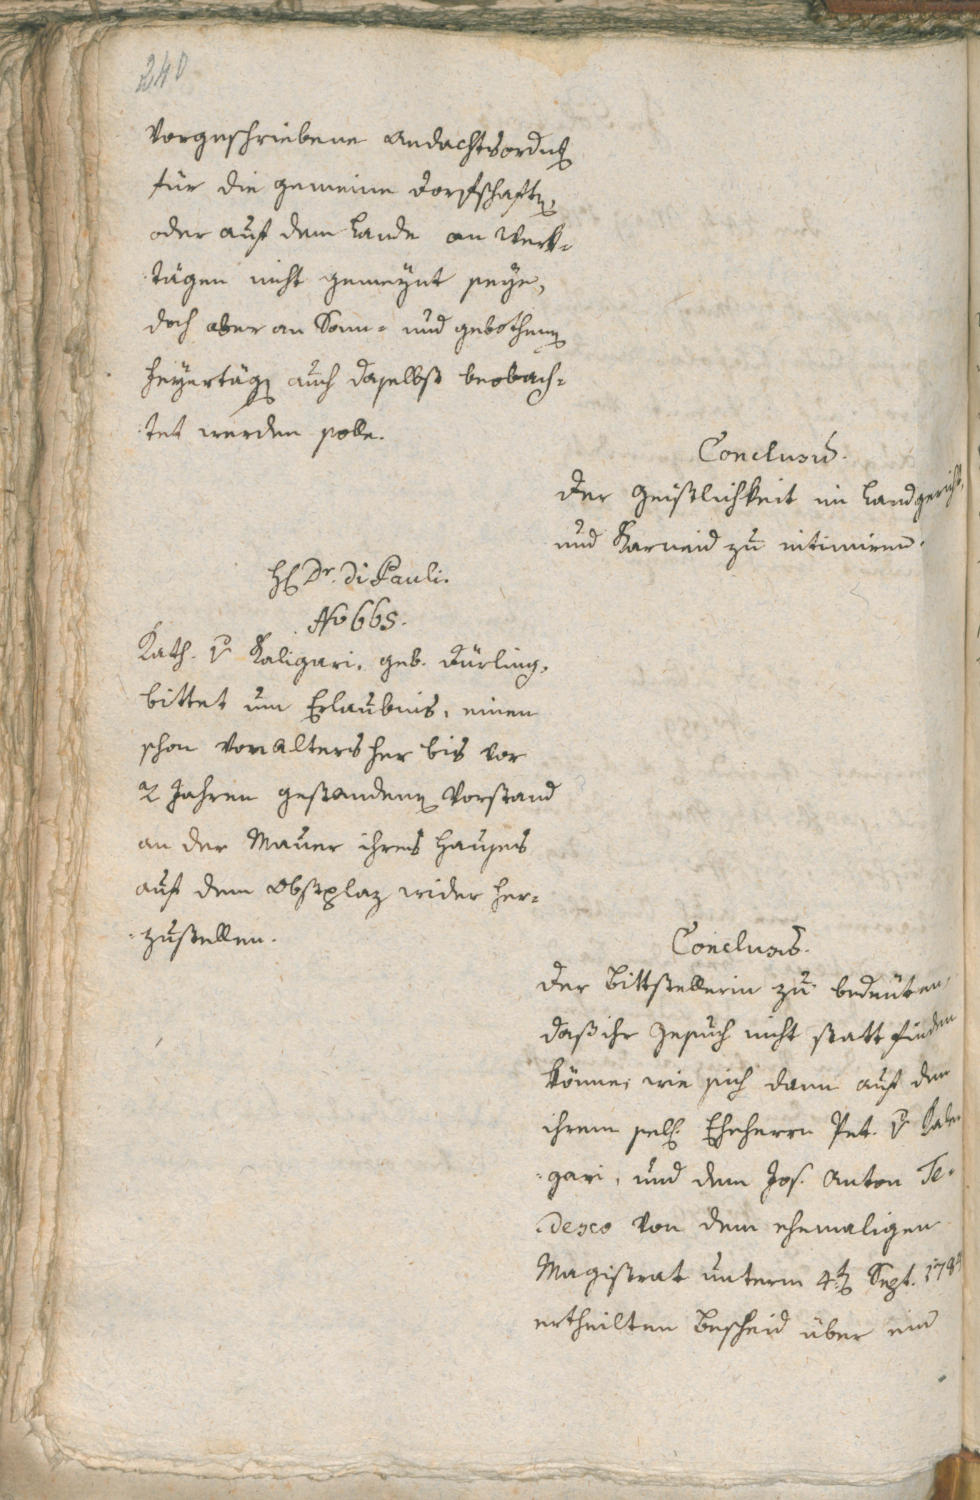 240
vorgeschriebene Andachtsordng
für die gemeine Dorfschaftn,
oder auf dem Lande an Werk-
tägen nicht gemeynt seye,
doch aber an Sonn- und gebothenen
Feyertägn auch daselbst beobach-
tet werden solle.
Conclusum.
Der Geistlichkeit im Landgericht,
und Karneid zu intimiren.
H Dr. Di Pauli.
No 665.
Kath. v Kaligari, geb. Dürling,
bittet um Erlaubnis, einen
schon von Alters her bis vor
2 Jahren gestandenen Vorstand
an der Mauer ihres Hauses
auf dem Obstplaz wider her-
zustellen.
Conclusum.
Der Bittstellerin zu bedeuten,
daß ihr Gesuch nicht statt finden
könne, wie sich dann auf den
ihrem sel. Eheherrn Pet. v Kali-
gari, und dem Jos. Anton Te-
desco von dem ehemaligen
Magistrat unterm 4tn Sept.
ertheilten Bescheid über ein